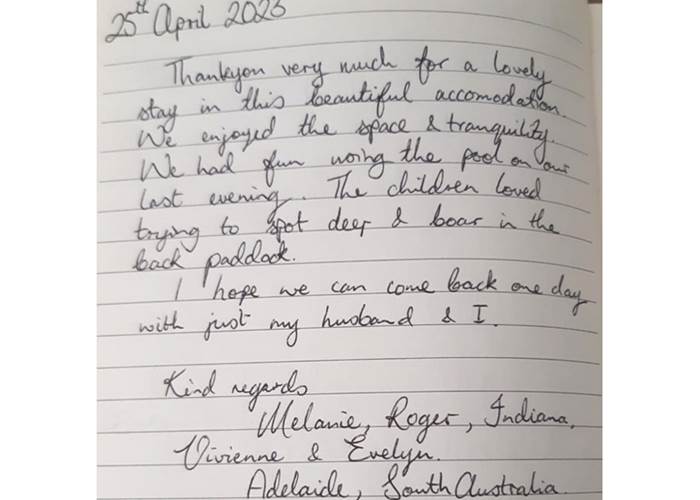 25th April 2023
Thankyou very much for a lovely
stay in this beautiful accomodation.
We enjoyed the space & tranquility.
We had fun using the pool on our
last evening. The children loved
trying to spot deer & boar in the
back paddock.
I hope we can come back one day
with just my husband & I.
Kind regards
Melanie, Roger, Indiana,
Vivienne & Evelyn.
Adelaide, South Australia